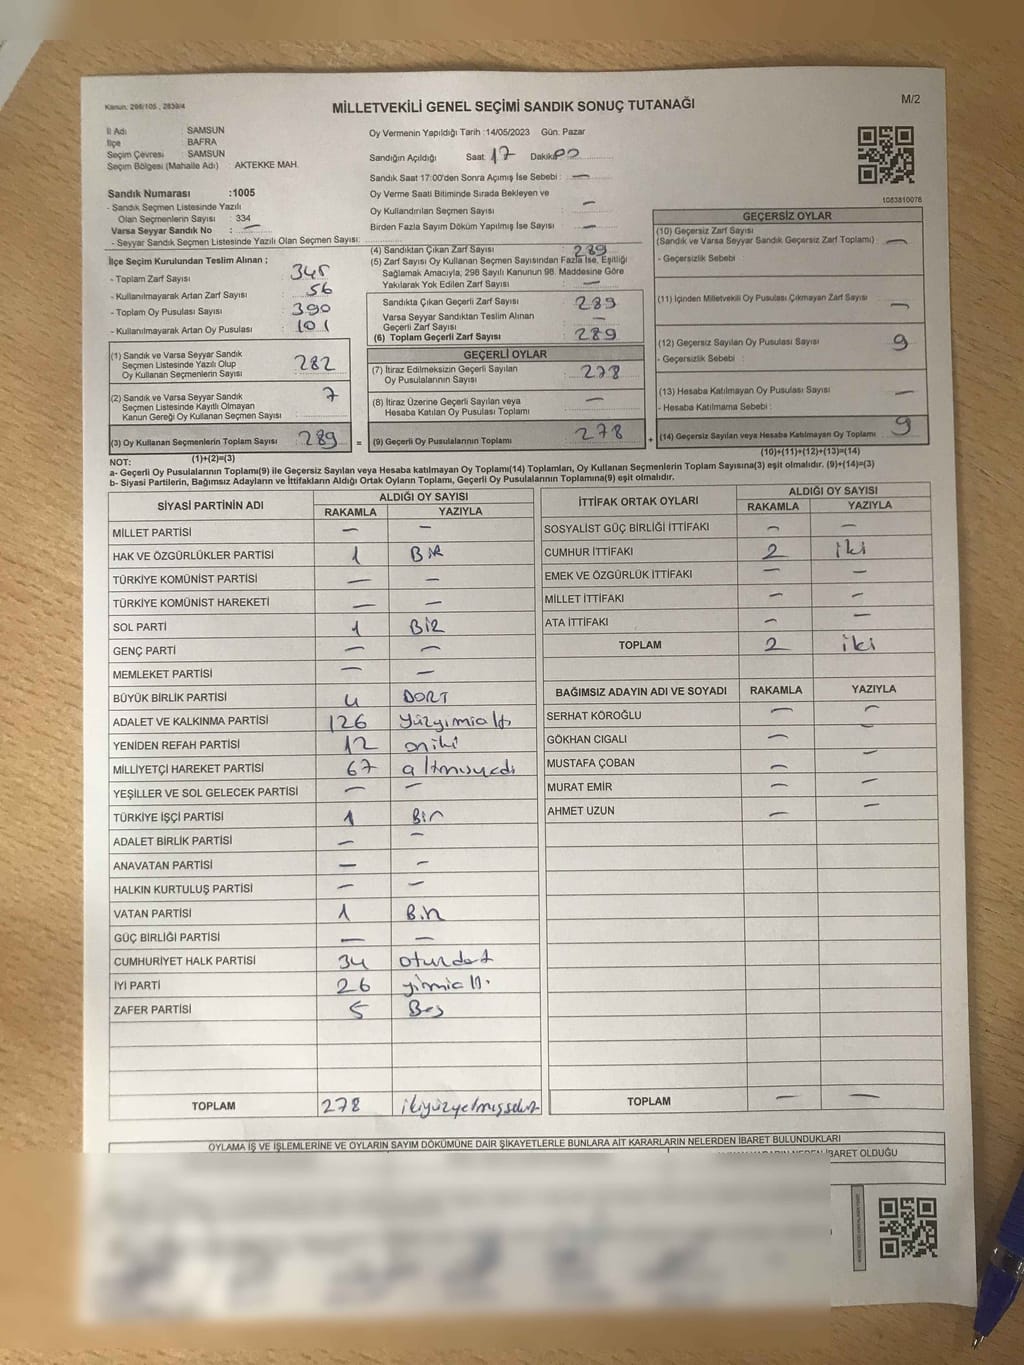 Kanun: 298/105 , 2839/4
MİLLETVEKİLİ GENEL SEÇİMİ SANDIK SONUÇ TUTANAĞI
M/2
İl Adı : SAMSUN
İlçe : BAFRA
Seçim Çevresi : SAMSUN
Seçim Bölgesi (Mahalle Adı) : AKTEKKE MAH.
Sandık Numarası :1005
- Sandık Seçmen Listesinde Yazılı
Olan Seçmenlerin Sayısı : 334
Varsa Seyyar Sandık No : —
- Seyyar Sandık Seçmen Listesinde Yazılı Olan Seçmen Sayısı:
Oy Vermenin Yapıldığı Tarih :14/05/2023 Gün. Pazar
Sandığın Açıldığı Saat 17 Dakika 00
Sandık Saat 17:00'den Sonra Açımış İse Sebebi : —
Oy Verme Saati Bitiminde Sırada Bekleyen ve
Oy Kullandırılan Seçmen Sayısı —
Birden Fazla Sayım Döküm Yapılmış İse Sayısı —
1083810076
İlçe Seçim Kurulundan Teslim Alınan ;
- Toplam Zarf Sayısı : 345
- Kullanılmayarak Artan Zarf Sayısı : 56
- Toplam Oy Pusulası Sayısı : 390
- Kullanılmayarak Artan Oy Pusulası : 101
(1) Sandık ve Varsa Seyyar Sandık
Seçmen Listesinde Yazılı Olup
Oy Kullanan Seçmenlerin Sayısı 282
(2) Sandık ve Varsa Seyyar Sandık
Seçmen Listesinde Kayıtlı Olmayan
Kanun Gereği Oy Kullanan Seçmen Sayısı 7
(3) Oy Kullanan Seçmenlerin Toplam Sayısı 289
(4) Sandıktan Çıkan Zarf Sayısı 289
(5) Zarf Sayısı Oy Kullanan Seçmen Sayısından Fazla İse, Eşitliği
Sağlamak Amacıyla, 298 Sayılı Kanunun 98. Maddesine Göre
Yakılarak Yok Edilen Zarf Sayısı —
Sandıkta Çıkan Geçerli Zarf Sayısı 289
Varsa Seyyar Sandıktan Teslim Alınan
Geçerli Zarf Sayısı —
(6) Toplam Geçerli Zarf Sayısı 289
GEÇERLİ OYLAR
(7) İtiraz Edilmeksizin Geçerli Sayılan
Oy Pusulalarının Sayısı 278
(8) İtiraz Üzerine Geçerli Sayılan veya
Hesaba Katılan Oy Pusulası Toplamı —
= (9) Geçerli Oy Pusulalarının Toplamı 278
GEÇERSİZ OYLAR
(10) Geçersiz Zarf Sayısı
(Sandık ve Varsa Seyyar Sandık Geçersiz Zarf Toplamı) —
- Geçersizlik Sebebi :
(11) İçinden Milletvekili Oy Pusulası Çıkmayan Zarf Sayısı —
(12) Geçersiz Sayılan Oy Pusulası Sayısı 9
- Geçersizlik Sebebi :
(13) Hesaba Katılmayan Oy Pusulası Sayısı —
- Hesaba Katılmama Sebebi :
+ (14) Geçersiz Sayılan veya Hesaba Katılmayan Oy Toplamı 9
NOT: (1)+(2)=(3)
(10)+(11)+(12)+(13)=(14)
a- Geçerli Oy Pusulalarının Toplamı(9) ile Geçersiz Sayılan veya Hesaba katılmayan Oy Toplamı(14) Toplamları, Oy Kullanan Seçmenlerin Toplam Sayısına(3) eşit olmalıdır. (9)+(14)=(3)
b- Siyasi Partilerin, Bağımsız Adayların ve İttifakların Aldığı Ortak Oyların Toplamı, Geçerli Oy Pusulalarının Toplamına(9) eşit olmalıdır.
SİYASİ PARTİNİN ADI ALDIĞI OY SAYISI
RAKAMLA YAZIYLA
MİLLET PARTİSİ — —
HAK VE ÖZGÜRLÜKLER PARTİSİ 1 BİR
TÜRKİYE KOMÜNİST PARTİSİ — —
TÜRKİYE KOMÜNİST HAREKETİ — —
SOL PARTİ 1 BİR
GENÇ PARTİ — —
MEMLEKET PARTİSİ — —
BÜYÜK BİRLİK PARTİSİ 4 DÖRT
ADALET VE KALKINMA PARTİSİ 126 Yüzyirmialtı
YENİDEN REFAH PARTİSİ 12 oniki
MİLLİYETÇİ HAREKET PARTİSİ 67 altmışyedi
YEŞİLLER VE SOL GELECEK PARTİSİ — —
TÜRKİYE İŞÇİ PARTİSİ 1 Bir
ADALET BİRLİK PARTİSİ — —
ANAVATAN PARTİSİ — —
HALKIN KURTULUŞ PARTİSİ — —
VATAN PARTİSİ 1 Bir
GÜÇ BİRLİĞİ PARTİSİ — —
CUMHURİYET HALK PARTİSİ 34 otuzdört
İYİ PARTİ 26 yirmialtı
ZAFER PARTİSİ 5 Beş
TOPLAM 278 ikiyüzyetmişsekiz
İTTİFAK ORTAK OYLARI ALDIĞI OY SAYISI
RAKAMLA YAZIYLA
SOSYALİST GÜÇ BİRLİĞİ İTTİFAKI — —
CUMHUR İTTİFAKI 2 iki
EMEK VE ÖZGÜRLÜK İTTİFAKI — —
MİLLET İTTİFAKI — —
ATA İTTİFAKI — —
TOPLAM 2 iki
BAĞIMSIZ ADAYIN ADI VE SOYADI RAKAMLA YAZIYLA
SERHAT KÖROĞLU — —
GÖKHAN CIGALI — —
MUSTAFA ÇOBAN — —
MURAT EMİR — —
AHMET UZUN — —
TOPLAM — —
OYLAMA İŞ VE İŞLEMLERİNE VE OYLARIN SAYIM DÖKÜMÜNE DAİR ŞİKAYETLERLE BUNLARA AİT KARARLARIN NELERDEN İBARET BULUNDUKLARI
İBARET OLDUĞU